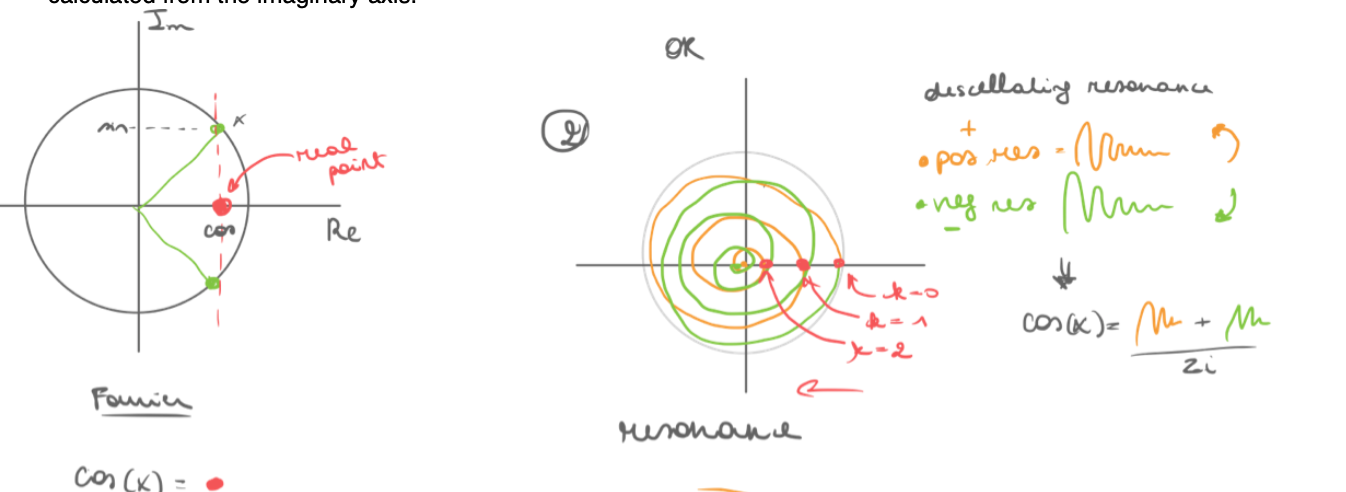 calculated from the imaginary axis.
Im
sin
x
real
point
cos
Re
Fourier
cos(x) =
OR
2
k=0
k=1
k=2
resonance
discellating resonance
+
• pos res =
• neg res
−
cos(x) = +
2i